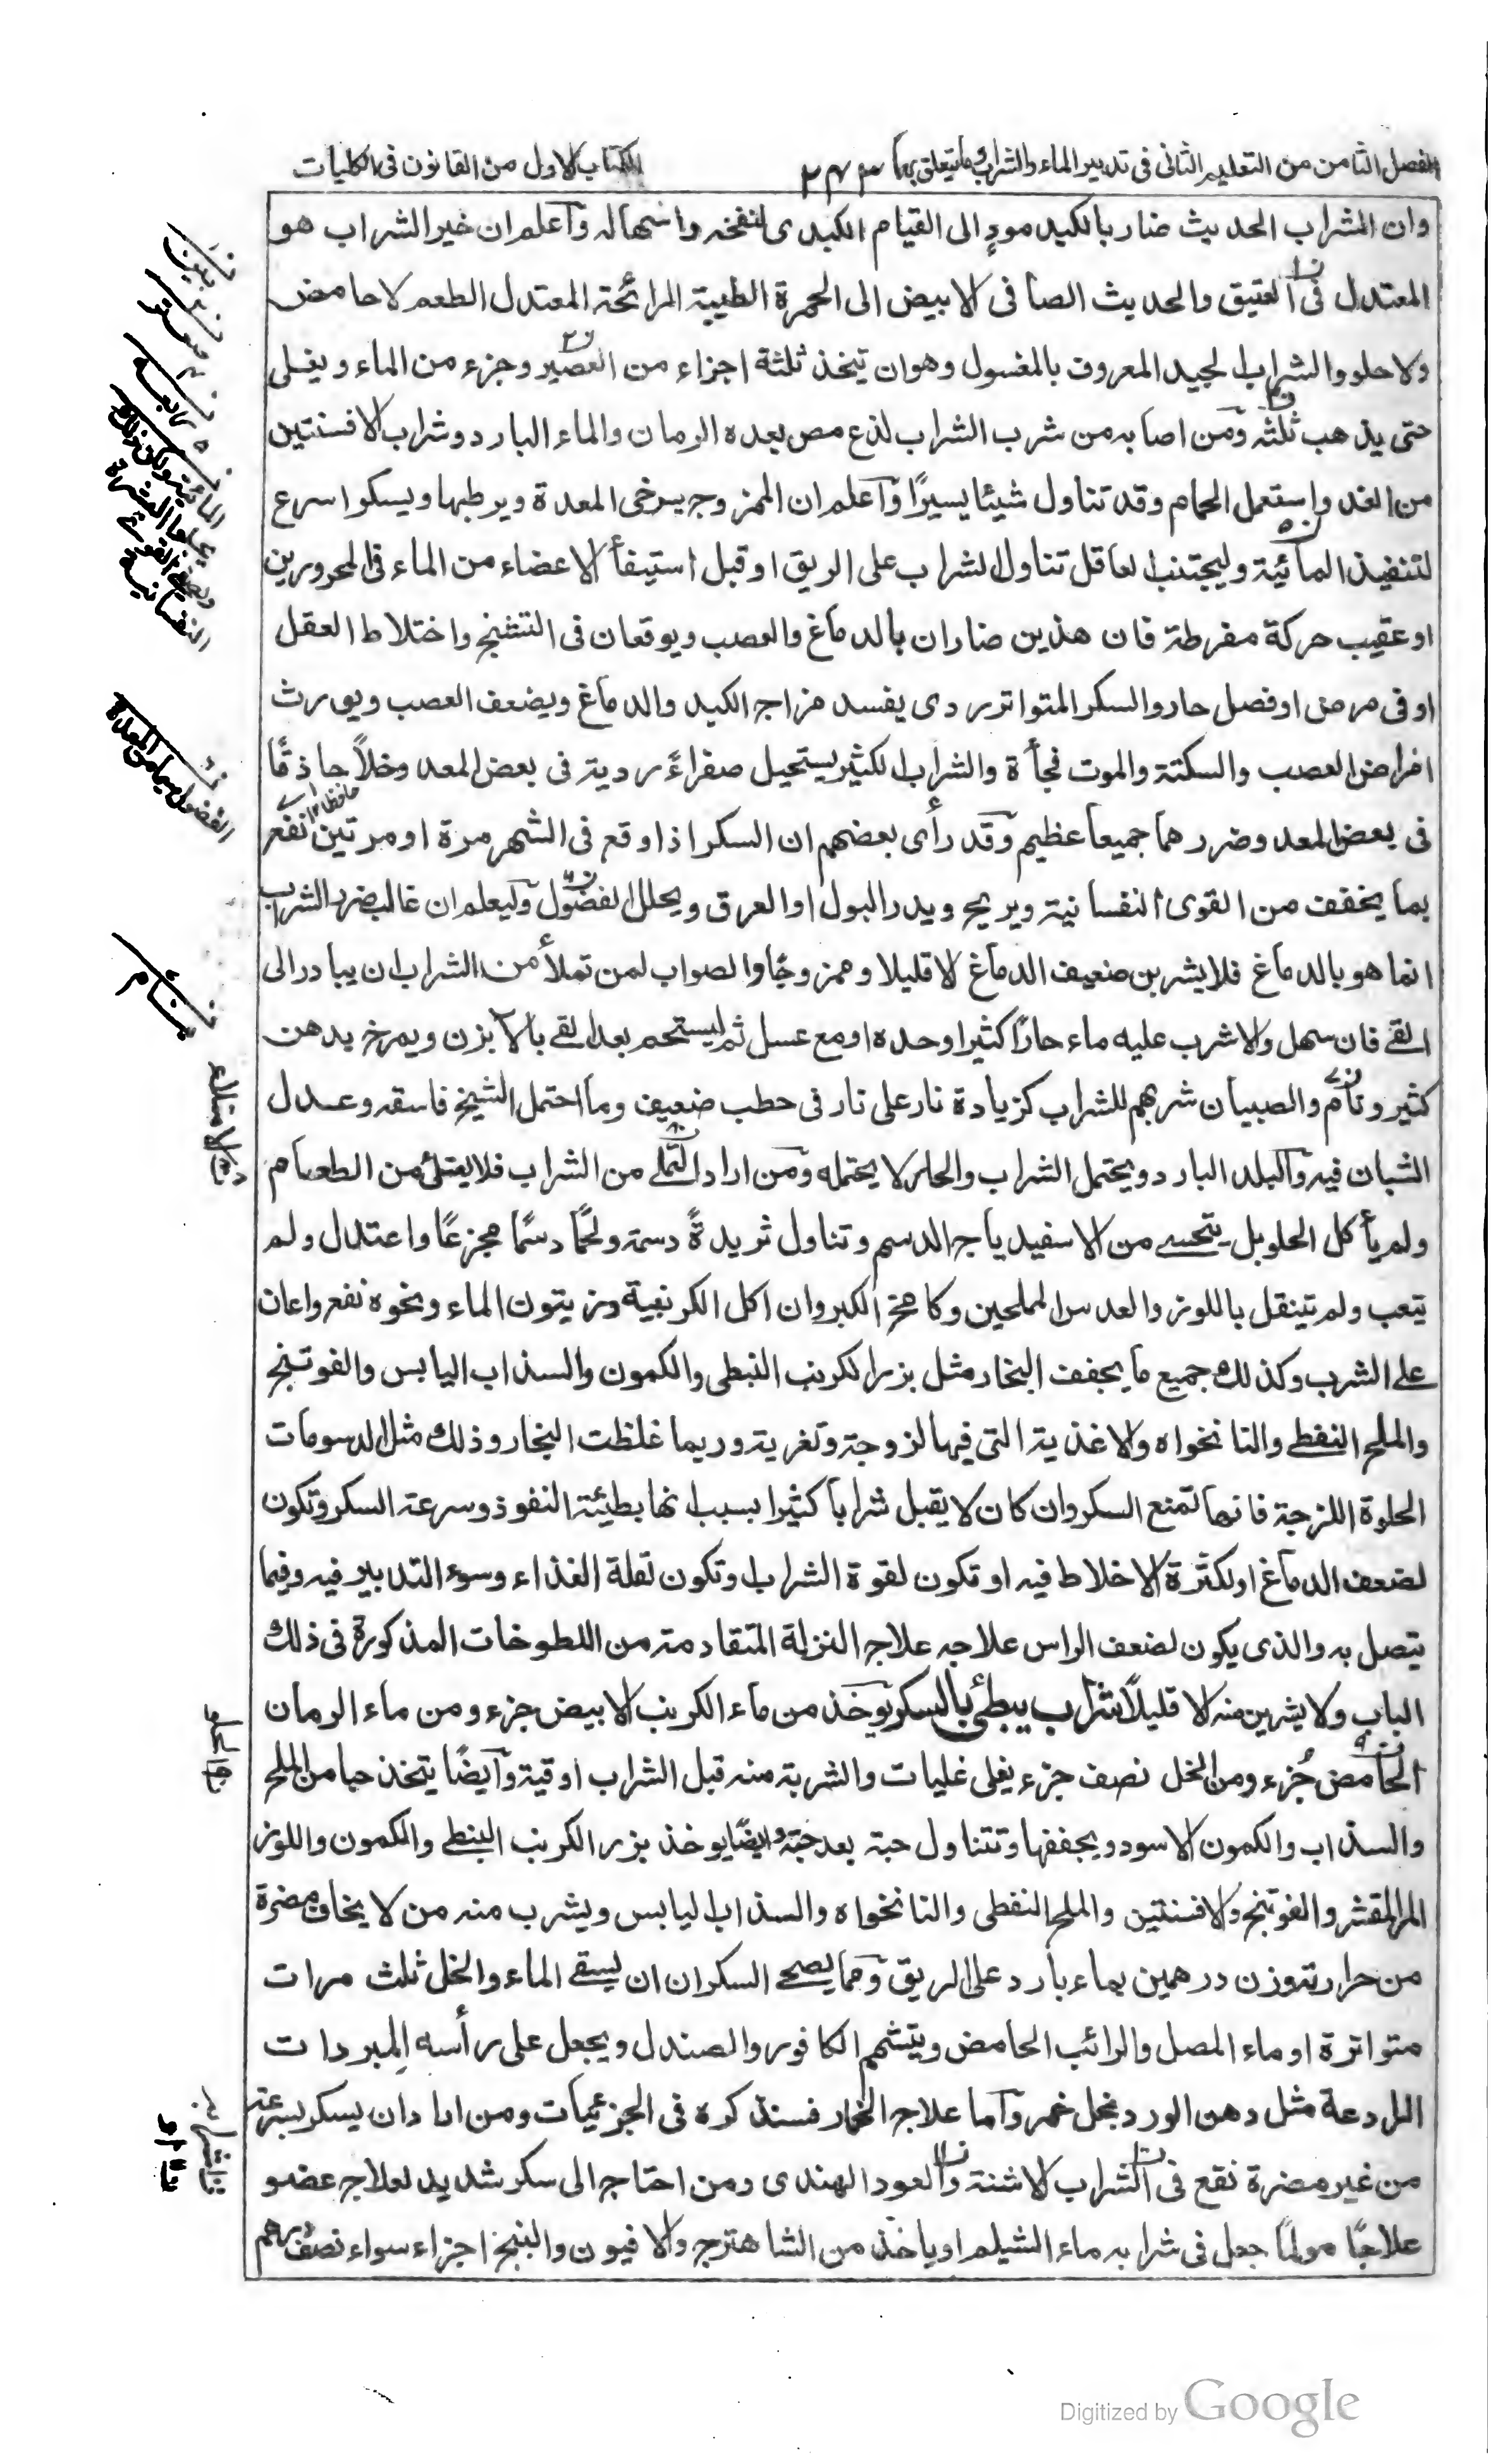 الفصل الثامن من التعليم الثانى فى تدبير الماء والشراب وما يتعلق بهما ٢٤٣ الكتاب الاول من القانون فى الكليات
وان الشراب الحديث ضار بالكبد مودٍ الى القيام الكبدى لنفخه واسهاله وآعلم ان خير الشراب هو
المعتدل فى العتيق والحديث الصافى الابيض الى الحمرة الطيبة الرائحة المعتدل الطعم لا حامض
ولا حلو والشراب الجيد المعروف بالمغسول وهو ان يتخذ ثلثة اجزاء من العصير وجزء من الماء ويغلى
حتى يذهب ثلثه ومن اصابه من شرب الشراب لذع مص بعده الرمان والماء البارد وشراب الافسنتين
من الغد واستعمل الحمام وقد تناول شيئا يسيرًا وآعلم ان الممزوج يرخى المعدة ويرطبها ويسكر اسرع
لتنفيذ المائية وليجتنب العاقل تناول الشراب على الريق او قبل استيفأ الاعضاء من الماء فى المحرورين
او عقيب حركة مفرطة فان هذين ضاران بالدماغ والعصب ويوقعان فى التشنج واختلاط العقل
او فى مرض او فصل حار والسكر المتواتر ردى يفسد مزاج الكبد والدماغ ويضعف العصب ويورث
امراض العصب والسكتة والموت فجأة والشراب الكثير يستحيل صفراءً ردية فى بعض المعد وخلاً حاذقًا
فى بعض المعد وضررهما جميعا عظيم وقد رأى بعضهم ان السكر اذا وقع فى الشهر مرة او مرتين نفع
بما يخفف من القوى النفسانية ويريح ويدر البول او العرق ويحلل الفضول وليعلم ان غالب ضرر الشراب
انما هو بالدماغ فلا يشربن ضعيف الدماغ الا قليلا وممزوجًا والصواب لمن تملأ من الشراب ان يبادر الى
القے فان سهل والا شرب عليه ماء حارًا كثيرا وحده او مع عسل ثم ليستحم بعد القے بالآبزن ويمرخ بدهن
كثير ونام والصبيان شربهم للشراب كزيادة نار على نار فى حطب ضعيف وما احتمل الشيخ فاسقه وعدل
الشبان فيه والبلد البارد ويحتمل الشراب والحار لا يحتمله ومن اراد التملے من الشراب فلا يمتلئ من الطعام
ولم يأكل الحلو بل يتحسے من الاسفيدباج الدسم وتناول ثريدةً دسمة ولحمًا دسمًا مجزعًا واعتدل ولم
يتعب ولم يتنقل باللوز والعدس المملحين وكامخ الكبر وان اكل الكرنبية وزيتون الماء ونحوه نفع واعان
علے الشرب وكذلك جميع ما يجفف البخار مثل بزر الكرنب النبطى والكمون والسذاب اليابس والفوتنج
والملح النفطے والنانخواه والاغذية التى فيها لزوجة وتغرية وربما غلظت البخار وذلك مثل الدسومات
الحلوة اللزجة فانها تمنع السكر وان كان لا يقبل شرابا كثيرا بسبب انها بطيئة النفوذ وسرعة السكر وتكون
لضعف الدماغ او لكثرة الاخلاط فيه او تكون لقوة الشراب وتكون لقلة الغذاء وسوء التدبير فيه وفيما
يتصل به والذى يكون لضعف الراس علاجه علاج النزلة المتقادمة من اللطوخات المذكورة فى ذلك
الباب ولا يشربن منه الا قليلاً شراب يبطئ بالسكر يوخذ من ماء الكرنب الابيض جزء ومن ماء الرمان
الحامض جُزء ومن الخل نصف جزء يغلى غليات والشربة منه قبل الشراب اوقية وآيضًا يتخذ حبا من الملح
والسذاب والكمون الاسود ويجففها وتتناول حبة بعد حبة وايضًا يوخذ بزر الكرنب النبطے والكمون واللوز
المر المقشر والفوتنج والافسنتين والملح النفطى والنانخواه والسذاب اليابس ويشرب منه من لا يخاف مضرة
من حرارته وزن درهمين بماء بارد على الريق ومما يصحے السكران ان يسقے الماء والخل ثلث مرات
متواترة او ماء المصل والرائب الحامض ويتشمم الكافور والصندل ويجعل على رأسه المبردات
الرادعة مثل دهن الورد بخل خمر وآما علاج الخمار فسنذكره فى الجزئيات ومن اراد ان يسكر بسرعة
من غير مضرة نقع فى الشراب الاشنة والعود الهندى ومن احتاج الى سكر شديد لعلاج عضو
علاجًا مولمًا جعل فى شرابه ماء الشيلم او ياخذ من الشاهترج والافيون والبنج اجزاء سواء نصف درهم
Digitized by Google